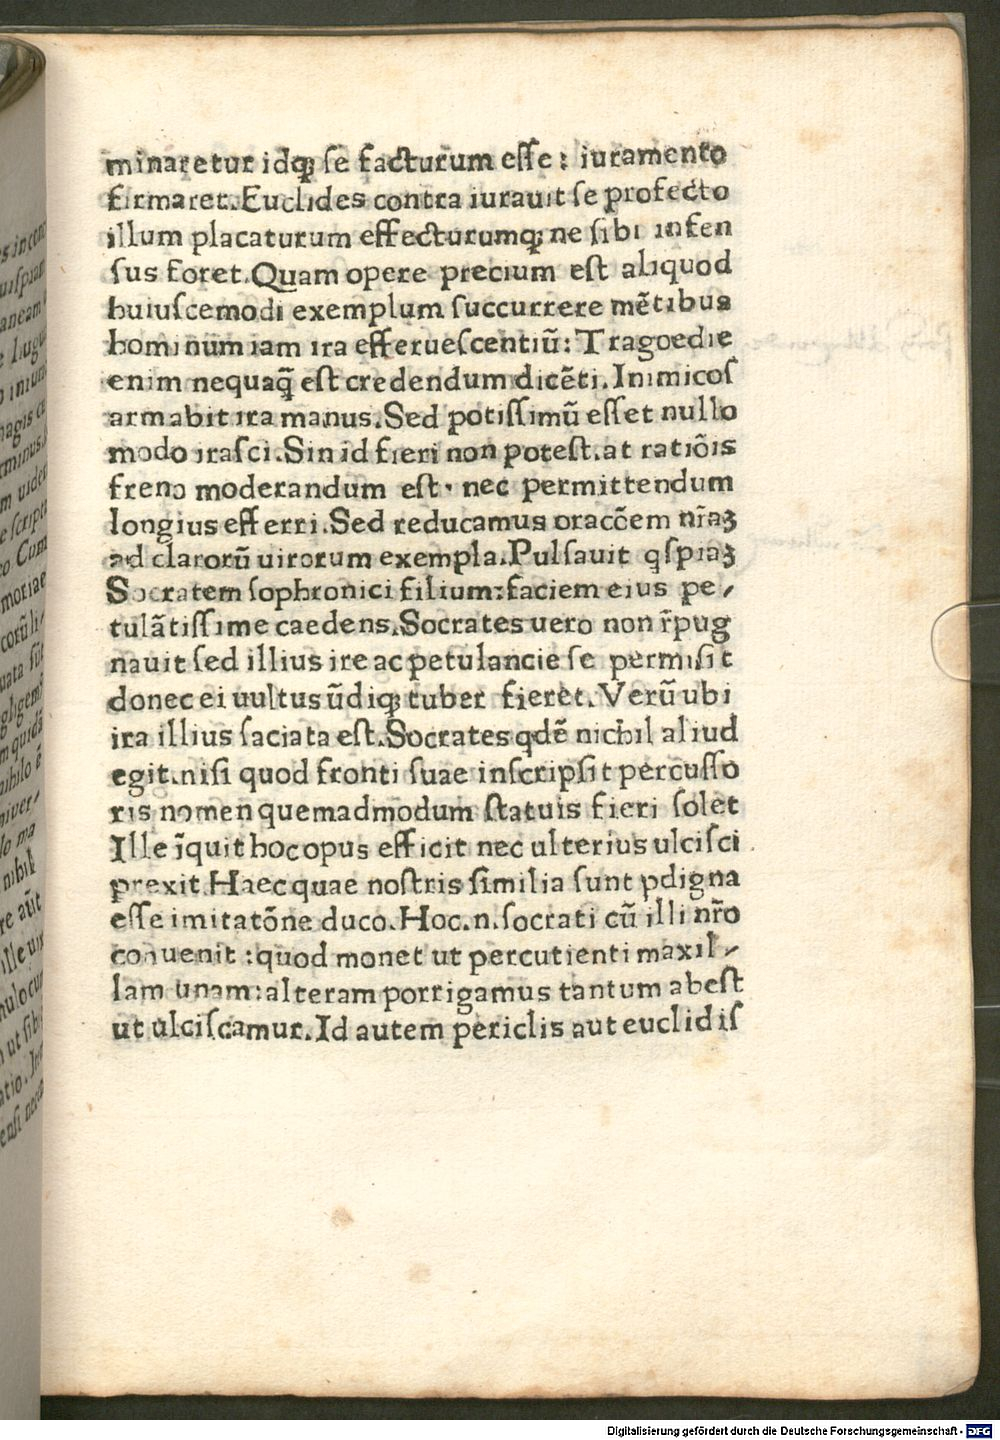 minaretur idqꝫ se facturum esse: iuramento
firmaret. Euclides contra iurauit se profecto
illum placaturum effecturumqꝫ ne sibi infen
sus foret. Quam opere precium est aliquod
huiuscemodi exemplum succurrere mẽtibus
hominum iam ira efferuescentiũ: Tragoedie
enim nequaq̃ est credendum dicẽti. Inimicos
armabit ira manus. Sed potissimũ esset nullo
modo irasci. Sin id fieri non potest. at ratiõis
freno moderandum est. nec permittendum
longius efferri. Sed reducamus oracc̃em nr̃aꝫ
ad clarorũ uirorum exempla. Pulsauit qspiaꝫ
Socratem sophronici filium: faciem eius pe/
tulãtissime caedens. Socrates uero non r̃pug
nauit sed illius ire ac petulancie se permisit
donec ei uultus ũdiqꝫ tuber fieret. Verũ ubi
ira illius saciata est. Socrates qdẽ nichil aliud
egit. nisi quod fronti suae inscripsit percusso
ris nomen quemadmodum statuis fieri solet
Ille ĩquit hoc opus efficit nec ulterius ulcisci
prexit. Haec quae nostris similia sunt ꝑdigna
esse imitatõne duco. Hoc .n. socrati cũ illi nr̃o
conuenit: quod monet ut percutienti maxil/
lam unam: alteram porrigamus tantum abest
ut ulciscamur. Id autem periclis aut euclidis
Digitalisierung gefördert durch die Deutsche Forschungsgemeinschaft - DFG